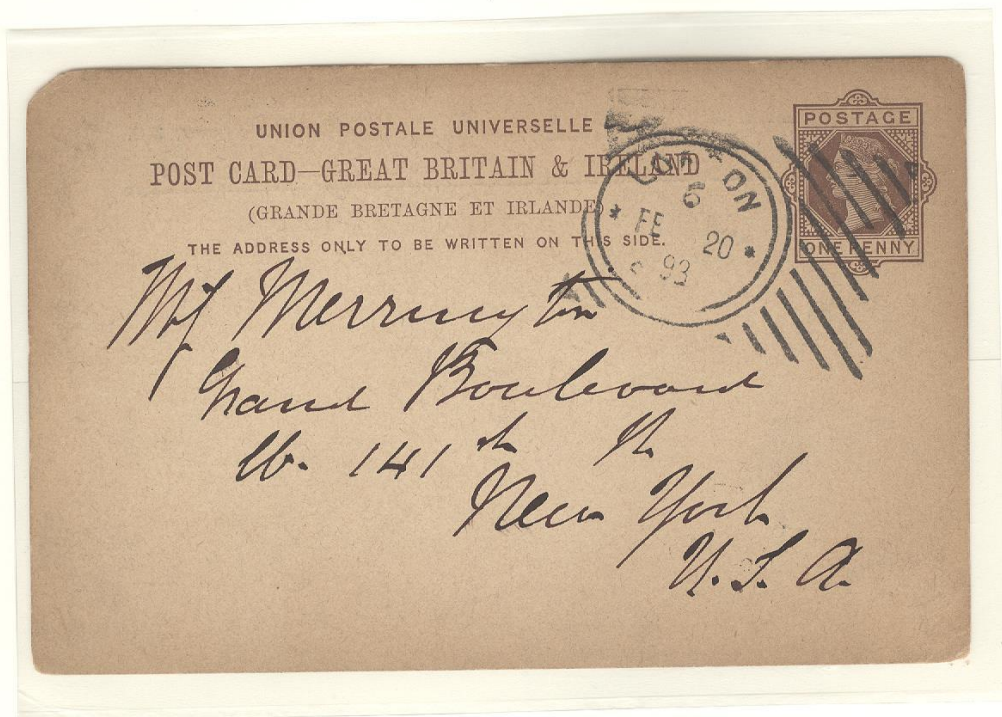 UNION POSTALE UNIVERSELLE
POSTAGE
POST CARD—GREAT BRITAIN & IRELAND
(GRANDE BRETAGNE ET IRLANDE)
THE ADDRESS ONLY TO BE WRITTEN ON THIS SIDE.
ONE PENNY
6
FE 20
93
Merrington
Grand Boulevard
W. 141th St
New York
U.S.A.